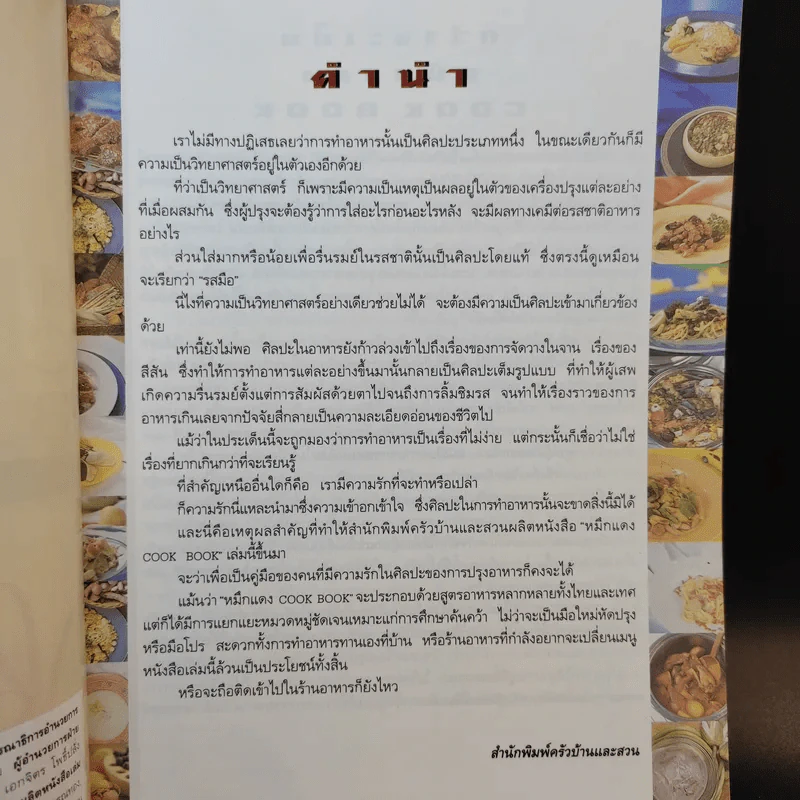 คำนำ
เราไม่มีทางปฏิเสธเลยว่าการทำอาหารนั้นเป็นศิลปะประเภทหนึ่ง ในขณะเดียวกันก็มี
ความเป็นวิทยาศาสตร์อยู่ในตัวเองอีกด้วย
ที่ว่าเป็นวิทยาศาสตร์ ก็เพราะมีความเป็นเหตุเป็นผลอยู่ในตัวของเครื่องปรุงแต่ละอย่าง
ที่เมื่อผสมกัน ซึ่งผู้ปรุงจะต้องรู้ว่าการใส่อะไรก่อนอะไรหลัง จะมีผลทางเคมีต่อรสชาติอาหาร
อย่างไร
ส่วนใส่มากหรือน้อยเพื่อรื่นรมย์ในรสชาตินั้นเป็นศิลปะโดยแท้ ซึ่งตรงนี้ดูเหมือน
จะเรียกว่า “รสมือ”
นี่ไงที่ความเป็นวิทยาศาสตร์อย่างเดียวช่วยไม่ได้ จะต้องมีความเป็นศิลปะเข้ามาเกี่ยวข้อง
ด้วย
เท่านี้ยังไม่พอ ศิลปะในอาหารยังก้าวล่วงเข้าไปถึงเรื่องของการจัดวางในจาน เรื่องของ
สีสัน ซึ่งทำให้การทำอาหารแต่ละอย่างขึ้นมานั้นกลายเป็นศิลปะเต็มรูปแบบ ที่ทำให้ผู้เสพ
เกิดความรื่นรมย์ตั้งแต่การสัมผัสด้วยตาไปจนถึงการลิ้มชิมรส จนทำให้เรื่องราวของการ
อาหารเกินเลยจากปัจจัยสี่กลายเป็นความละเอียดอ่อนของชีวิตไป
แม้ว่าในประเด็นนี้จะถูกมองว่าการทำอาหารเป็นเรื่องที่ไม่ง่าย แต่กระนั้นก็เชื่อว่าไม่ใช่
เรื่องที่ยากเกินกว่าที่จะเรียนรู้
ที่สำคัญเหนืออื่นใดก็คือ เรามีความรักที่จะทำหรือเปล่า
ก็ความรักนี่แหละนำมาซึ่งความเข้าอกเข้าใจ ซึ่งศิลปะในการทำอาหารนั้นจะขาดสิ่งนี้มิได้
และนี่คือเหตุผลสำคัญที่ทำให้สำนักพิมพ์ครัวบ้านและสวนผลิตหนังสือ “หมึกแดง
COOK BOOK” เล่มนี้ขึ้นมา
จะว่าเพื่อเป็นคู่มือของคนที่มีความรักในศิลปะของการปรุงอาหารก็คงจะได้
แม้นว่า “หมึกแดง COOK BOOK” จะประกอบด้วยสูตรอาหารหลากหลายทั้งไทยและเทศ
แต่ก็ได้มีการแยกแยะหมวดหมู่ชัดเจนเหมาะแก่การศึกษาค้นคว้า ไม่ว่าจะเป็นมือใหม่หัดปรุง
หรือมือโปร สะดวกทั้งการทำอาหารทานเองที่บ้าน หรือร้านอาหารที่กำลังอยากจะเปลี่ยนเมนู
หนังสือเล่มนี้ล้วนเป็นประโยชน์ทั้งสิ้น
หรือจะถือติดเข้าไปในร้านอาหารก็ยังไหว
สำนักพิมพ์ครัวบ้านและสวน
รณาธิการอำนวยการ
ผู้อำนวยการฝ่าย